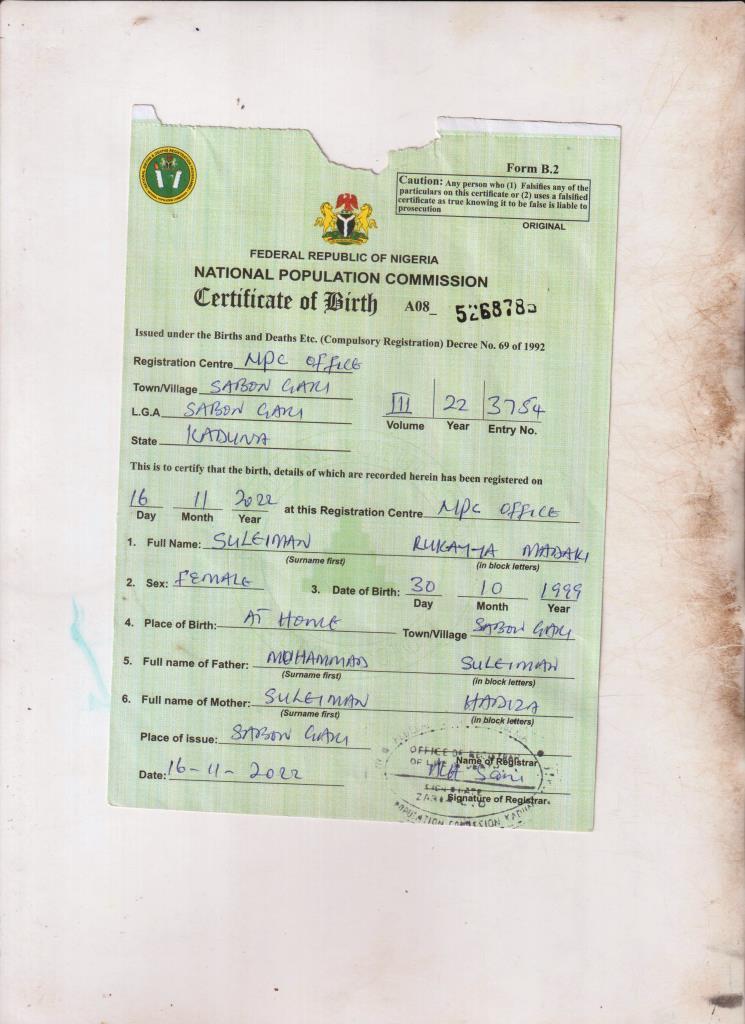 Form B.2
Caution: Any person who (1) Falsifies any of the
particulars on this certificate or (2) uses a falsified
certificate as true knowing it to be false is liable to
prosecution
ORIGINAL
FEDERAL REPUBLIC OF NIGERIA
NATIONAL POPULATION COMMISSION
Certificate of Birth A08_
Issued under the Births and Deaths Etc. (Compulsory Registration) Decree No. 69 of 1992
Registration Centre NPC OFFICE
Town/Village SABON GARI
L.G.A SABON GARI III 22 3754
Volume Year Entry No.
State KADUNA
This is to certify that the birth, details of which are recorded herein has been registered on
16 11 2022 at this Registration Centre NPC OFFICE
Day Month Year
1. Full Name: SULEIMAN RUKAYYA MADAKI
(Surname first) (in block letters)
2. Sex: FEMALE 3. Date of Birth: 30 10 1999
Day Month Year
4. Place of Birth: AT HOME Town/Village SABON GARI
5. Full name of Father: MOHAMMAD SULEIMAN
(Surname first) (in block letters)
6. Full name of Mother: SULEIMAN HADIZA
(Surname first) (in block letters)
Place of issue: SABON GARI
OFFICE OF REGISTRAR
Name of Registrar
Date: 16-11-2022 Sani
Signature of Registrar